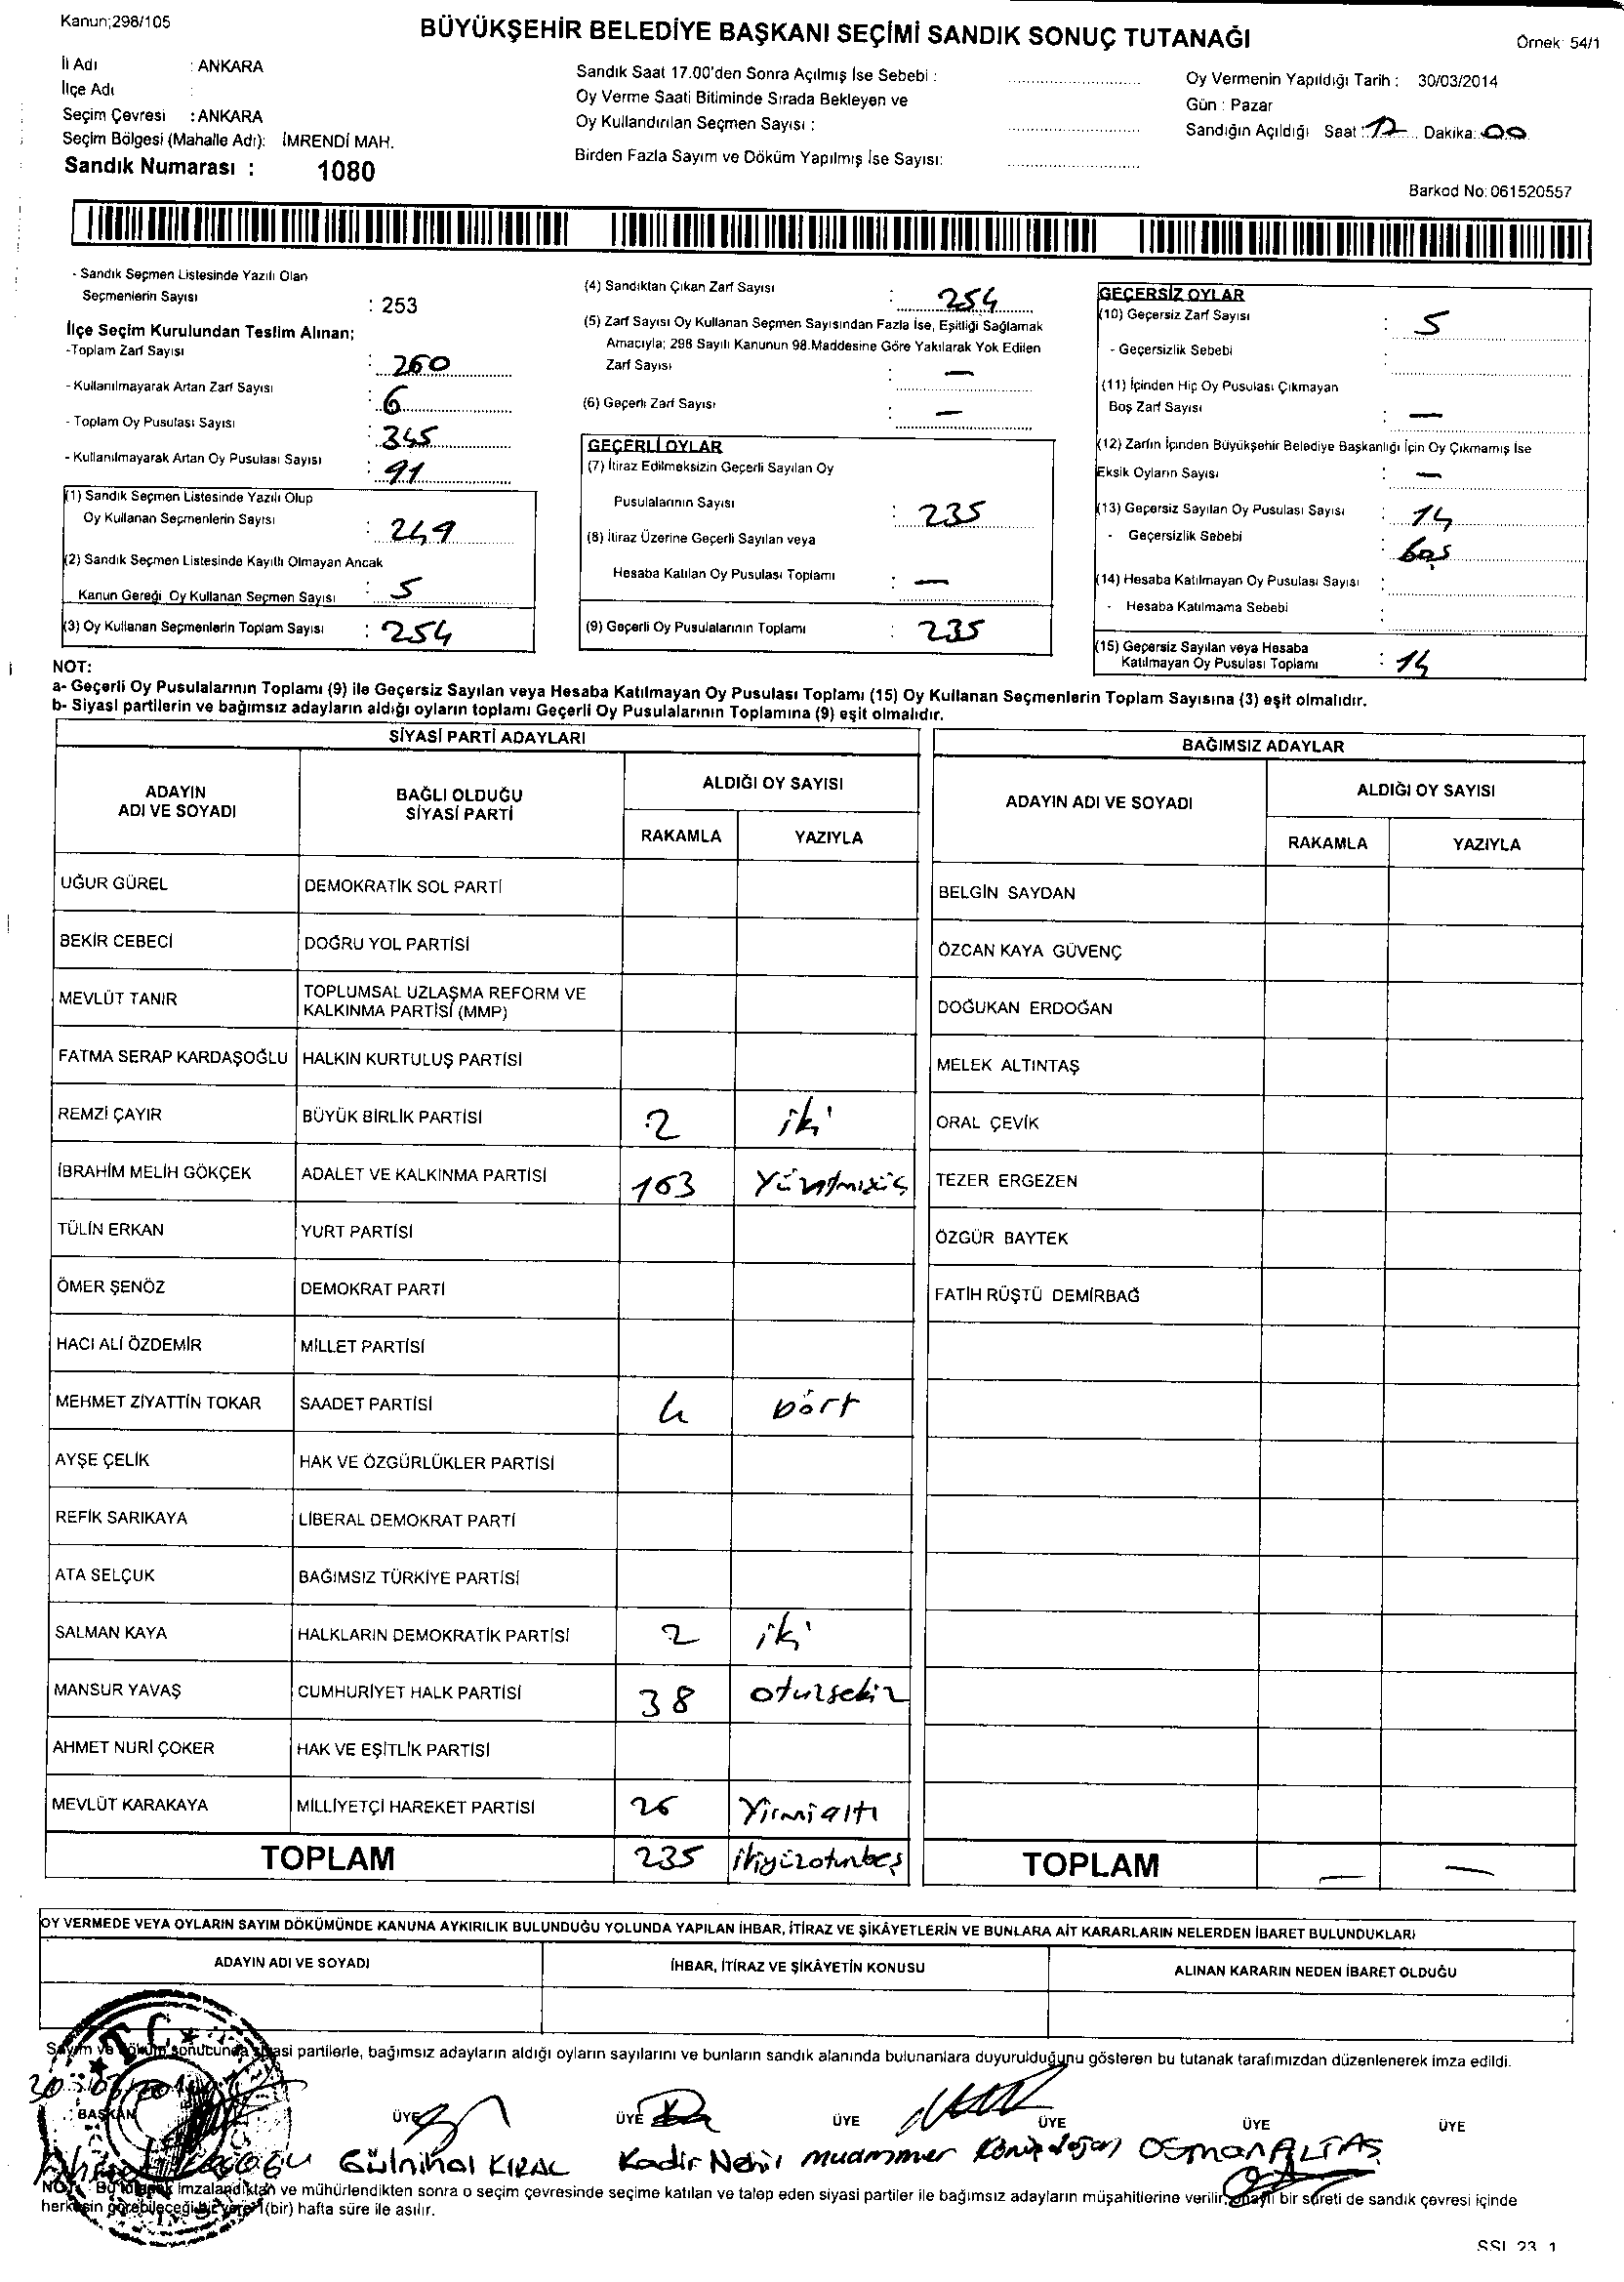 Kanun;298/105
BÜYÜKŞEHİR BELEDİYE BAŞKANI SEÇİMİ SANDIK SONUÇ TUTANAĞI
Örnek: 54/1
İl Adı : ANKARA
İlçe Adı :
Seçim Çevresi : ANKARA
Seçim Bölgesi (Mahalle Adı): İMRENDİ MAH.
Sandık Numarası : 1080
Sandık Saat 17.00'den Sonra Açılmış İse Sebebi :
Oy Verme Saati Bitiminde Sırada Bekleyen ve
Oy Kullandırılan Seçmen Sayısı :
Birden Fazla Sayım ve Döküm Yapılmış İse Sayısı:
Oy Vermenin Yapıldığı Tarih : 30/03/2014
Gün : Pazar
Sandığın Açıldığı Saat : 17 Dakika: 00
Barkod No: 061520557
- Sandık Seçmen Listesinde Yazılı Olan
Seçmenlerin Sayısı : 253
İlçe Seçim Kurulundan Teslim Alınan;
-Toplam Zarf Sayısı : 260
- Kullanılmayarak Artan Zarf Sayısı : 6
- Toplam Oy Pusulası Sayısı : 345
- Kullanılmayarak Artan Oy Pusulası Sayısı : 91
(1) Sandık Seçmen Listesinde Yazılı Olup
Oy Kullanan Seçmenlerin Sayısı : 249
(2) Sandık Seçmen Listesinde Kayıtlı Olmayan Ancak
Kanun Gereği Oy Kullanan Seçmen Sayısı : 5
(3) Oy Kullanan Seçmenlerin Toplam Sayısı : 254
(4) Sandıktan Çıkan Zarf Sayısı : 254
(5) Zarf Sayısı Oy Kullanan Seçmen Sayısından Fazla İse, Eşitliği Sağlamak
Amacıyla; 298 Sayılı Kanunun 98.Maddesine Göre Yakılarak Yok Edilen
Zarf Sayısı : —
(6) Geçerli Zarf Sayısı : —
GEÇERLİ OYLAR
(7) İtiraz Edilmeksizin Geçerli Sayılan Oy
Pusulalarının Sayısı : 235
(8) İtiraz Üzerine Geçerli Sayılan veya
Hesaba Katılan Oy Pusulası Toplamı : —
(9) Geçerli Oy Pusulalarının Toplamı : 235
GEÇERSİZ OYLAR
(10) Geçersiz Zarf Sayısı : 5
- Geçersizlik Sebebi :
(11) İçinden Hiç Oy Pusulası Çıkmayan
Boş Zarf Sayısı : —
(12) Zarfın İçinden Büyükşehir Belediye Başkanlığı İçin Oy Çıkmamış İse
Eksik Oyların Sayısı : —
(13) Geçersiz Sayılan Oy Pusulası Sayısı : 14
- Geçersizlik Sebebi : boş
(14) Hesaba Katılmayan Oy Pusulası Sayısı :
- Hesaba Katılmama Sebebi :
(15) Geçersiz Sayılan veya Hesaba
Katılmayan Oy Pusulası Toplamı : 14
NOT:
a- Geçerli Oy Pusulalarının Toplamı (9) ile Geçersiz Sayılan veya Hesaba Katılmayan Oy Pusulası Toplamı (15) Oy Kullanan Seçmenlerin Toplam Sayısına (3) eşit olmalıdır.
b- Siyasi partilerin ve bağımsız adayların aldığı oyların toplamı Geçerli Oy Pusulalarının Toplamına (9) eşit olmalıdır.
SİYASİ PARTİ ADAYLARI
ADAYIN ADI VE SOYADI
BAĞLI OLDUĞU SİYASİ PARTİ
ALDIĞI OY SAYISI
RAKAMLA YAZIYLA
UĞUR GÜREL DEMOKRATİK SOL PARTİ
BEKİR CEBECİ DOĞRU YOL PARTİSİ
MEVLÜT TANIR TOPLUMSAL UZLAŞMA REFORM VE
KALKINMA PARTİSİ (MMP)
FATMA SERAP KARDAŞOĞLU HALKIN KURTULUŞ PARTİSİ
REMZİ ÇAYIR BÜYÜK BİRLİK PARTİSİ 2 iki
İBRAHİM MELİH GÖKÇEK ADALET VE KALKINMA PARTİSİ 163
TÜLİN ERKAN YURT PARTİSİ
ÖMER ŞENÖZ DEMOKRAT PARTİ
HACI ALİ ÖZDEMİR MİLLET PARTİSİ
MEHMET ZİYATTİN TOKAR SAADET PARTİSİ 4 Dört
AYŞE ÇELİK HAK VE ÖZGÜRLÜKLER PARTİSİ
REFİK SARIKAYA LİBERAL DEMOKRAT PARTİ
ATA SELÇUK BAĞIMSIZ TÜRKİYE PARTİSİ
SALMAN KAYA HALKLARIN DEMOKRATİK PARTİSİ 2 iki
MANSUR YAVAŞ CUMHURİYET HALK PARTİSİ 38 otuzsekiz
AHMET NURİ ÇOKER HAK VE EŞİTLİK PARTİSİ
MEVLÜT KARAKAYA MİLLİYETÇİ HAREKET PARTİSİ 26 Yirmialtı
TOPLAM 235 ikiyüzotuzbeş
BAĞIMSIZ ADAYLAR
ADAYIN ADI VE SOYADI
ALDIĞI OY SAYISI
RAKAMLA YAZIYLA
BELGİN SAYDAN
ÖZCAN KAYA GÜVENÇ
DOĞUKAN ERDOĞAN
MELEK ALTINTAŞ
ORAL ÇEVİK
TEZER ERGEZEN
ÖZGÜR BAYTEK
FATİH RÜŞTÜ DEMİRBAĞ
TOPLAM — —
OY VERMEDE VEYA OYLARIN SAYIM DÖKÜMÜNDE KANUNA AYKIRILIK BULUNDUĞU YOLUNDA YAPILAN İHBAR, İTİRAZ VE ŞİKÂYETLERİN VE BUNLARA AİT KARARLARIN NELERDEN İBARET BULUNDUKLARI
ADAYIN ADI VE SOYADI İHBAR, İTİRAZ VE ŞİKÂYETİN KONUSU ALINAN KARARIN NEDEN İBARET OLDUĞU
T.C.
Sayım ve döküm sonucunda siyasi partilerle, bağımsız adayların aldığı oyların sayılarını ve bunların sandık alanında bulunanlara duyurulduğunu gösteren bu tutanak tarafımızdan düzenlenerek imza edildi.
30.03.2014
BAŞKAN ÜYE ÜYE ÜYE ÜYE ÜYE ÜYE
Gülnihal KIRAL Kadir Nehir Muammer OSMAN ALTAŞ
NOT: Bu tutanak imzalandıktan ve mühürlendikten sonra o seçim çevresinde seçime katılan ve talep eden siyasi partiler ile bağımsız adayların müşahitlerine verilir, onaylı bir sureti de sandık çevresi içinde
herkesin görebileceği bir yere 1(bir) hafta süre ile asılır.
SSI 23 1